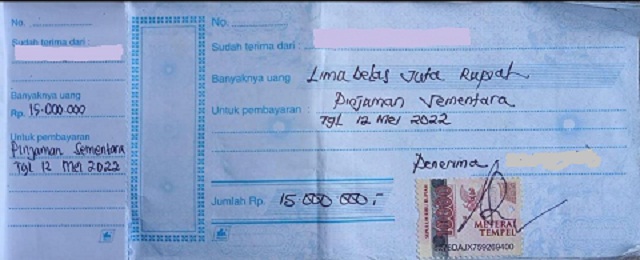 No.
Sudah terima dari :
Banyaknya uang
Rp. 15.000.000
Untuk pembayaran
Pinjaman Sementara
Tgl 12 Mei 2022
No.
Sudah terima dari :
Banyaknya uang Lima belas Juta Rupiah
Untuk pembayaran : Pinjaman Sementara
Tgl 12 Mei 2022
Penerima
Jumlah Rp. 15.000.000,-
10000
METERAI
TEMPEL